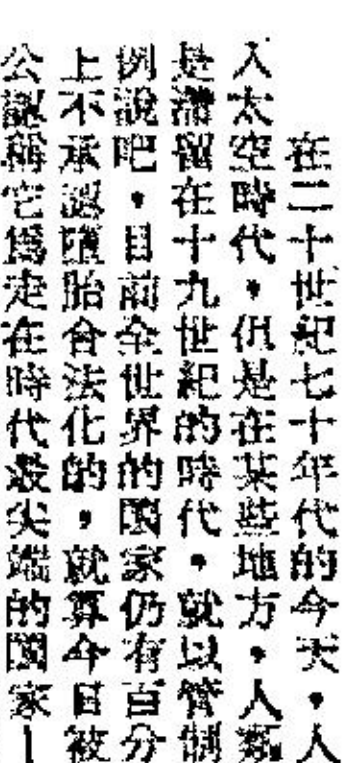 在二十世紀七十年代的今天，人
入太空時代，但是在某些地方，人類
是滯留在十九世紀的時代，就以管制
例說吧，目前全世界的國家仍有百分
上不承認墮胎合法化的，就算今日被
公認稱它爲走在時代最尖端的國家—